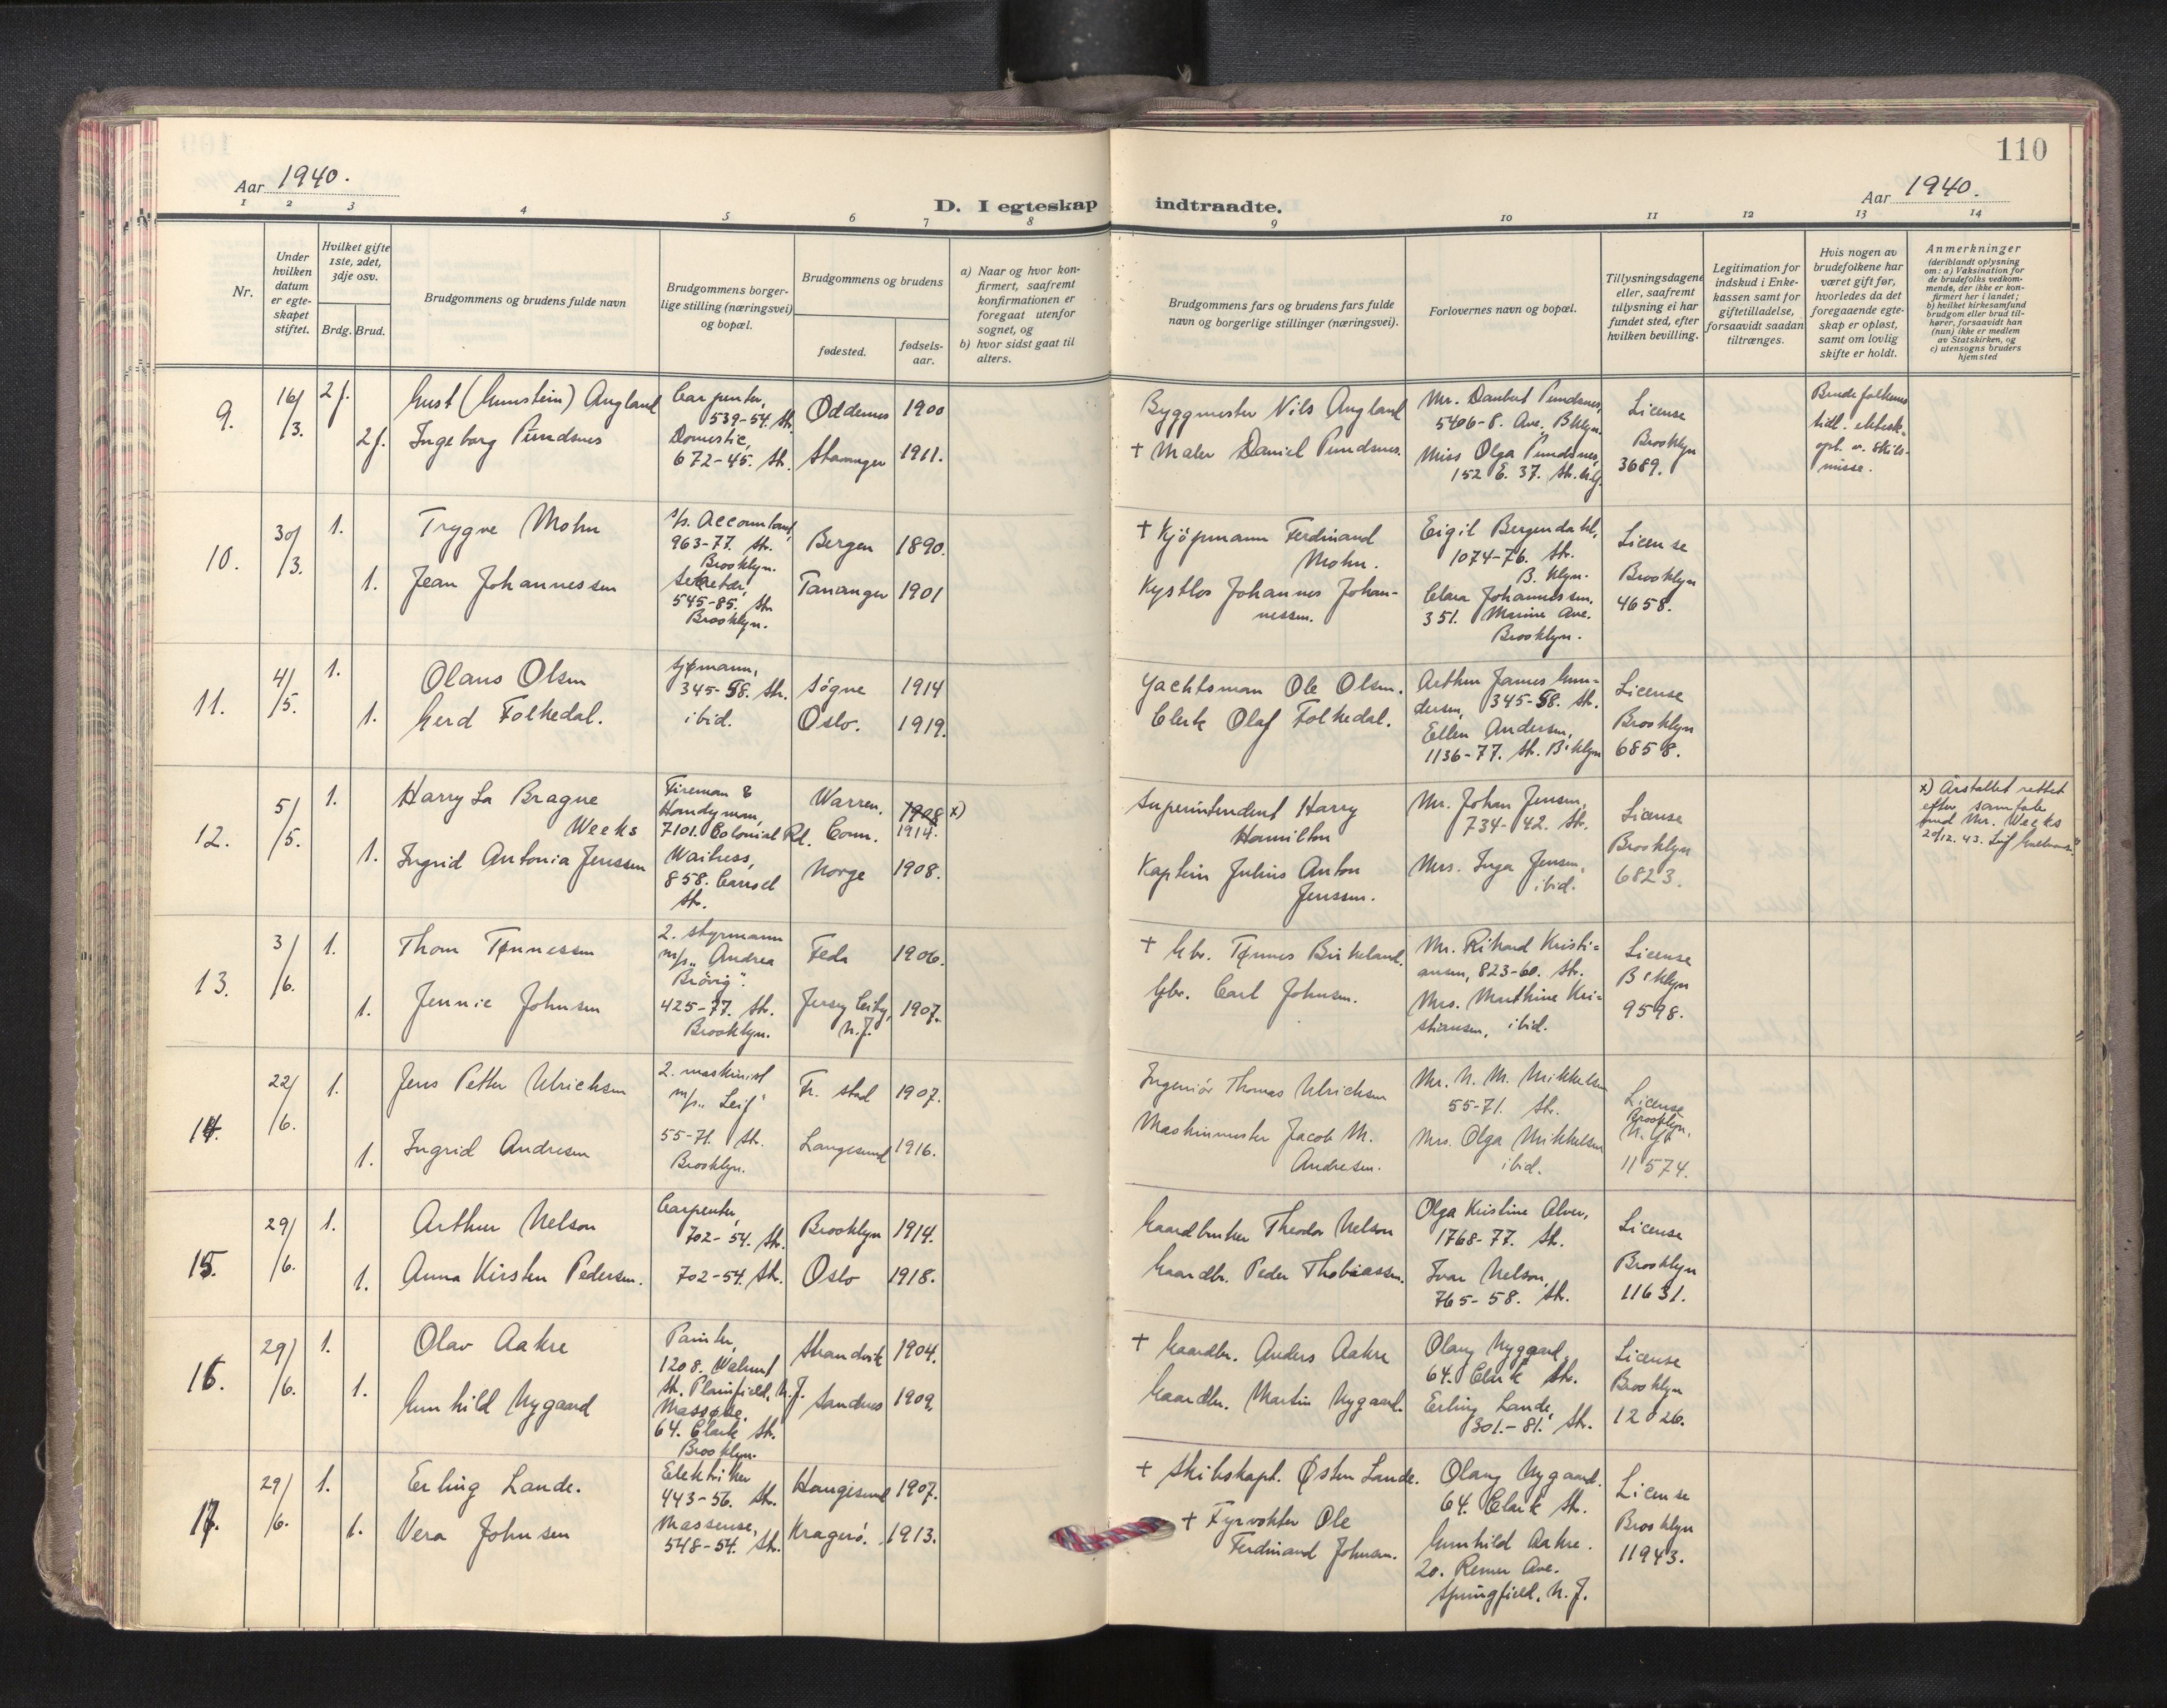 110
Aar 1940.
Aar 1940.
D. I egteskap indtraadte.
1 2 3 4 5 6 7 8 9 10 11 12 13 14
Nr.
Under
hvilken
datum
er egte-
skapet
stiftet.
Hvilket gifte
1ste, 2det,
3dje osv.
Brdg.
Brud.
Brudgommens og brudens fulde navn
Brudgommens borger-
lige stilling (næringsvei)
og bopæl.
Brudgommens og brudens
fødested.
fødsels-
aar.
a) Naar og hvor kon-
firmert, saafremt
konfirmationen er
foregaat utenfor
sognet, og
b) hvor sidst gaat til
alters.
Brudgommens fars og brudens fars fulde
navn og borgerlige stillinger (næringsvei).
Forlovernes navn og bopæl.
Tillysningsdagene
eller, saafremt
tillysning ei har
fundet sted, efter
hvilken bevilling.
Legitimation for
indskud i Enke-
kassen samt for
giftetilladelse,
forsaavidt saadan
tiltrænges.
Hvis nogen av
brudefolkene har
været gift før,
hvorledes da det
foregaaende egte-
skap er opløst,
samt om lovlig
skifte er holdt.
Anmerkninger
(deriblandt oplysning
om: a) Vaksination for
de brudefolks vedkom-
mende, der ikke er kon-
firmert her i landet;
b) hvilket kirkesamfund
brudgom eller brud til-
hører, forsaavidt han
(hun) ikke er medlem
av Statskirken, og
c) utensogns bruders
hjemsted
9.
16/
/3.
2 f.
2 f.
Gust (Gunstein) Augland
Ingeborg Pundsnes
Carpenter,
539-54. Str.
Domestic,
672-45. Str.
Oddernes 1900
Stavanger 1911.
Byggmester Nils Augland
+ Maler Daniel Pundsnes.
Mr. Danbert Pundsnes,
5406-8. Ave. Bklyn.
Miss Olga Pundsnes,
152 E. 37. Str.
License
Brooklyn
3689.
Brudefolkenes
tidl. ektesk.
opl. v. skils-
misse.
10.
30/
/3.
1.
1.
Trygve Mohn
Jean Johannessen
Accountant,
963-77. Str.
Brooklyn.
Sekretær,
545-85. Str.
Brooklyn.
Bergen 1890.
Tananger 1901
+ Kjöpmann Ferdinand
Mohn.
Kystlos Johannes Johan-
nessen.
Eigil Bergendahl,
1074-76. Str.
B. klyn.
Clara Johannessen,
351. Marine Ave.
Brooklyn.
License
Brooklyn
4658.
11.
4/
/5.
1.
1.
Olaus Olsen
Gerd Folkedal.
Sjømann,
345-58. Str.
ibid.
Søgne 1914
Oslo. 1919.
Yachtsman Ole Olsen.
Clerk Olaf Folkedal.
Arthur James Gun-
dersen, 345-58. Str.
Ellen Andersen,
1136-77. Str. B'klyn
License
Brooklyn
6858.
12.
5/
/5.
1.
1.
Harry La Brague
Weeks
Ingrid Antonia Jenssen
Fireman &
Handyman,
7101. Colonial Rd.
Waitress,
858. Carroll
Str.
Warren,
Conn.
1908 x)
1914.
Norge 1908.
Superintendent Harry
Hamilton
Kaptein Julius Anton
Jenssen.
Mr. Johan Jensen,
734-42. Str.
Mrs. Inga Jensen
ibid.
License
Brooklyn
6823.
x) Årstallet rettet
efter samtale
med Mr. Weeks
20/12. 43. Leif
13.
3/
/6.
1.
1.
Thom Tønnessen
Jennie Johnsen
2. styrmann
m/s „Andrea
Brövig".
425-77. Str.
Brooklyn.
Feda 1906.
Jersey City,
N.J.
1907.
+ Gbr. Tønnes Birkeland.
Gbr. Carl Johnsen.
Mr. Rikard Kristi-
ansen, 823-60. Str.
Mrs. Marthine Kri-
stiansen, ibid.
License
B'klyn
9598.
14.
22/
/6.
1.
1.
Jens Petter Ulrichsen
Ingrid Andresen
2. maskinist
m/s „Leif"
55-71. Str.
Brooklyn.
Fr. stad 1907.
Langesund 1916.
Ingeniör Thomas Ulrichsen
Maskinmester Jacob M.
Andresen.
Mr. N. M. Mikkelsen
55-71. Str.
Mrs. Olga Mikkelsen
ibid.
License
Brooklyn,
N. Y.
11574.
15.
29/
/6.
1.
1.
Arthur Nelson
Anna Kirsten Pedersen.
Carpenter,
702-54. Str.
702-54. Str.
Brooklyn 1914.
Oslo 1918.
Gaardbruker Theodor Nelson
Gaardbr. Peder Thobiassen.
Olga Kristine Alver,
1768-77. Str.
Ivar Nelson,
765-58. Str.
License
Brooklyn
11631.
16.
29/
/6.
1.
1.
Olav Aakre
Gunhild Nygaard
Painter,
1208. Walnut
Str. Plainfield, N.J.
Massøse,
64. Clark Str.
Brooklyn.
Strandvik 1904.
Sandnes 1909.
+ Gaardbr. Anders Aakre
Gaardbr. Martin Nygaard.
Olang Nygaard,
64. Clark Str.
Erling Lande,
301.-81. Str.
License
Brooklyn
12026.
17.
29/
/6.
1.
1.
Erling Lande.
Vera Johnsen
Elektriker
443-56. Str.
Massøse,
548-54. Str.
Haugesund 1907.
Kragerö. 1913.
+ Skibskapt. Østen Lande.
+ Fyrvokter Ole
Ferdinand Johnsen.
Olang Nygaard.
64. Clark Str.
Gunhild Aakre.
20. Remer Ave.
Springfield, N. J.
License
Brooklyn
11943.